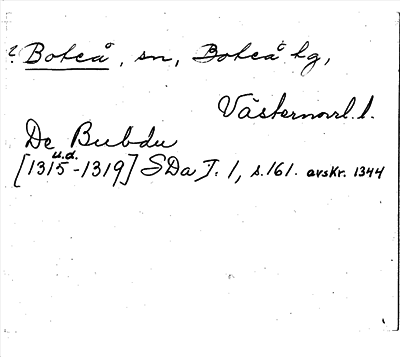 ? Boteå, sn, Boteå tg,
Västernorrl. l.
De Bubdu
u.d.
[1315-1319] SDa T. 1, s. 161. avskr. 1344